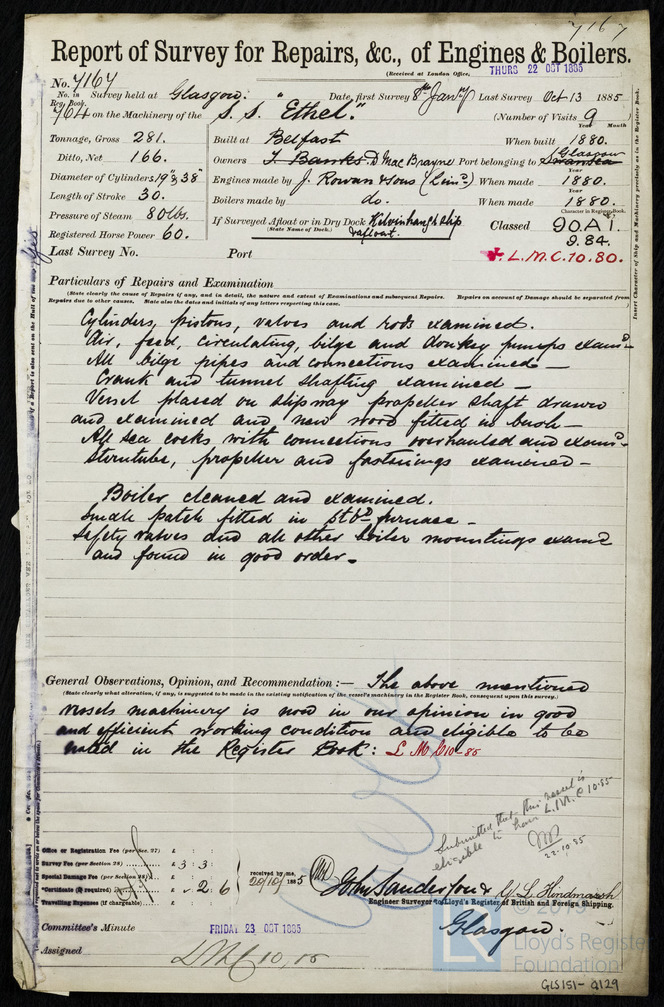 7167
Report of Survey for Repairs, &c., of Engines & Boilers.
(Received at London Office, THURS 22 OCT 1885
No. 7167
No. in Survey held at Glasgow. Date, first Survey 8th Jany Last Survey Oct 13 1885
Reg. Book.
764 on the Machinery of the S. S. "Ethel." (Number of Visits 9
Tonnage, Gross 281. Built at Belfast When built 1880.
Year Month
Ditto, Net 166. Owners T. Banks D Mac Brayne Port belonging to Swansea Glasgow
Diameter of Cylinders 19" & 38" Engines made by J. Rowan & Sons (Limd.) When made 1880.
Length of Stroke 30. Boilers made by do. When made 1880.
Pressure of Steam 80 lbs. If Surveyed Afloat or in Dry Dock Kelvinhaugh slip & afloat. Classed 90A1.
(State Name of Dock.)
Character in Register Book.
Registered Horse Power 60. 9.84.
Last Survey No. Port L.M.C. 10.80.
Particulars of Repairs and Examination
(State clearly the cause of Repairs if any, and in detail, the nature and extent of Examinations and subsequent Repairs. Repairs on account of Damage should be separated from
Repairs due to other causes. Make also the dates and initials of any letters respecting this case.)
Cylinders, pistons, valves and rods examined.
Air, feed, circulating, bilge and donkey pumps examd–
All bilge pipes and connections examined –
Crank and tunnel shafting examined –
Vessel placed on slipway propeller shaft drawn
and examined and new wood fitted in bush –
All sea cocks with connections overhauled and examd–
Sterntube, propeller and fastenings examined –
Boiler cleaned and examined.
Small patch fitted in Stbd furnace –
Safety valves and all other boiler mountings examd
and found in good order –
General Observations, Opinion, and Recommendation :— The above mentioned
(State clearly what alteration, if any, is suggested to be made in the existing notification of the vessel's machinery in the Register Book, consequent upon this survey.)
vessels machinery is now in our opinion in good
and efficient working condition and eligible to be
noted in the Register Book: L M C 10-85
Submitted that this vessel is
eligible to have L.M.C 10.85
22.10.85
Office or Registration Fee (per Sec. 27) £ : :
Survey Fee (per Section 28) £ 3 : 3 :
Special Damage Fee (per Section 28) £ : :
Certificate (if required) £ - 2 : 6
Travelling Expenses (if chargeable) £ : :
received by me, 20/10/1885
John Sanderson & G. L. Hindmarsh
Engineer Surveyor to Lloyd's Register of British and Foreign Shipping.
Glasgow.
Committee's Minute FRIDAY 23 OCT 1885
Assigned LMC 10,85
Insert Character of Ship and Machinery precisely as in the Register Book.
© 2019
LR
Lloyd's Register
Foundation
GLS151-0129